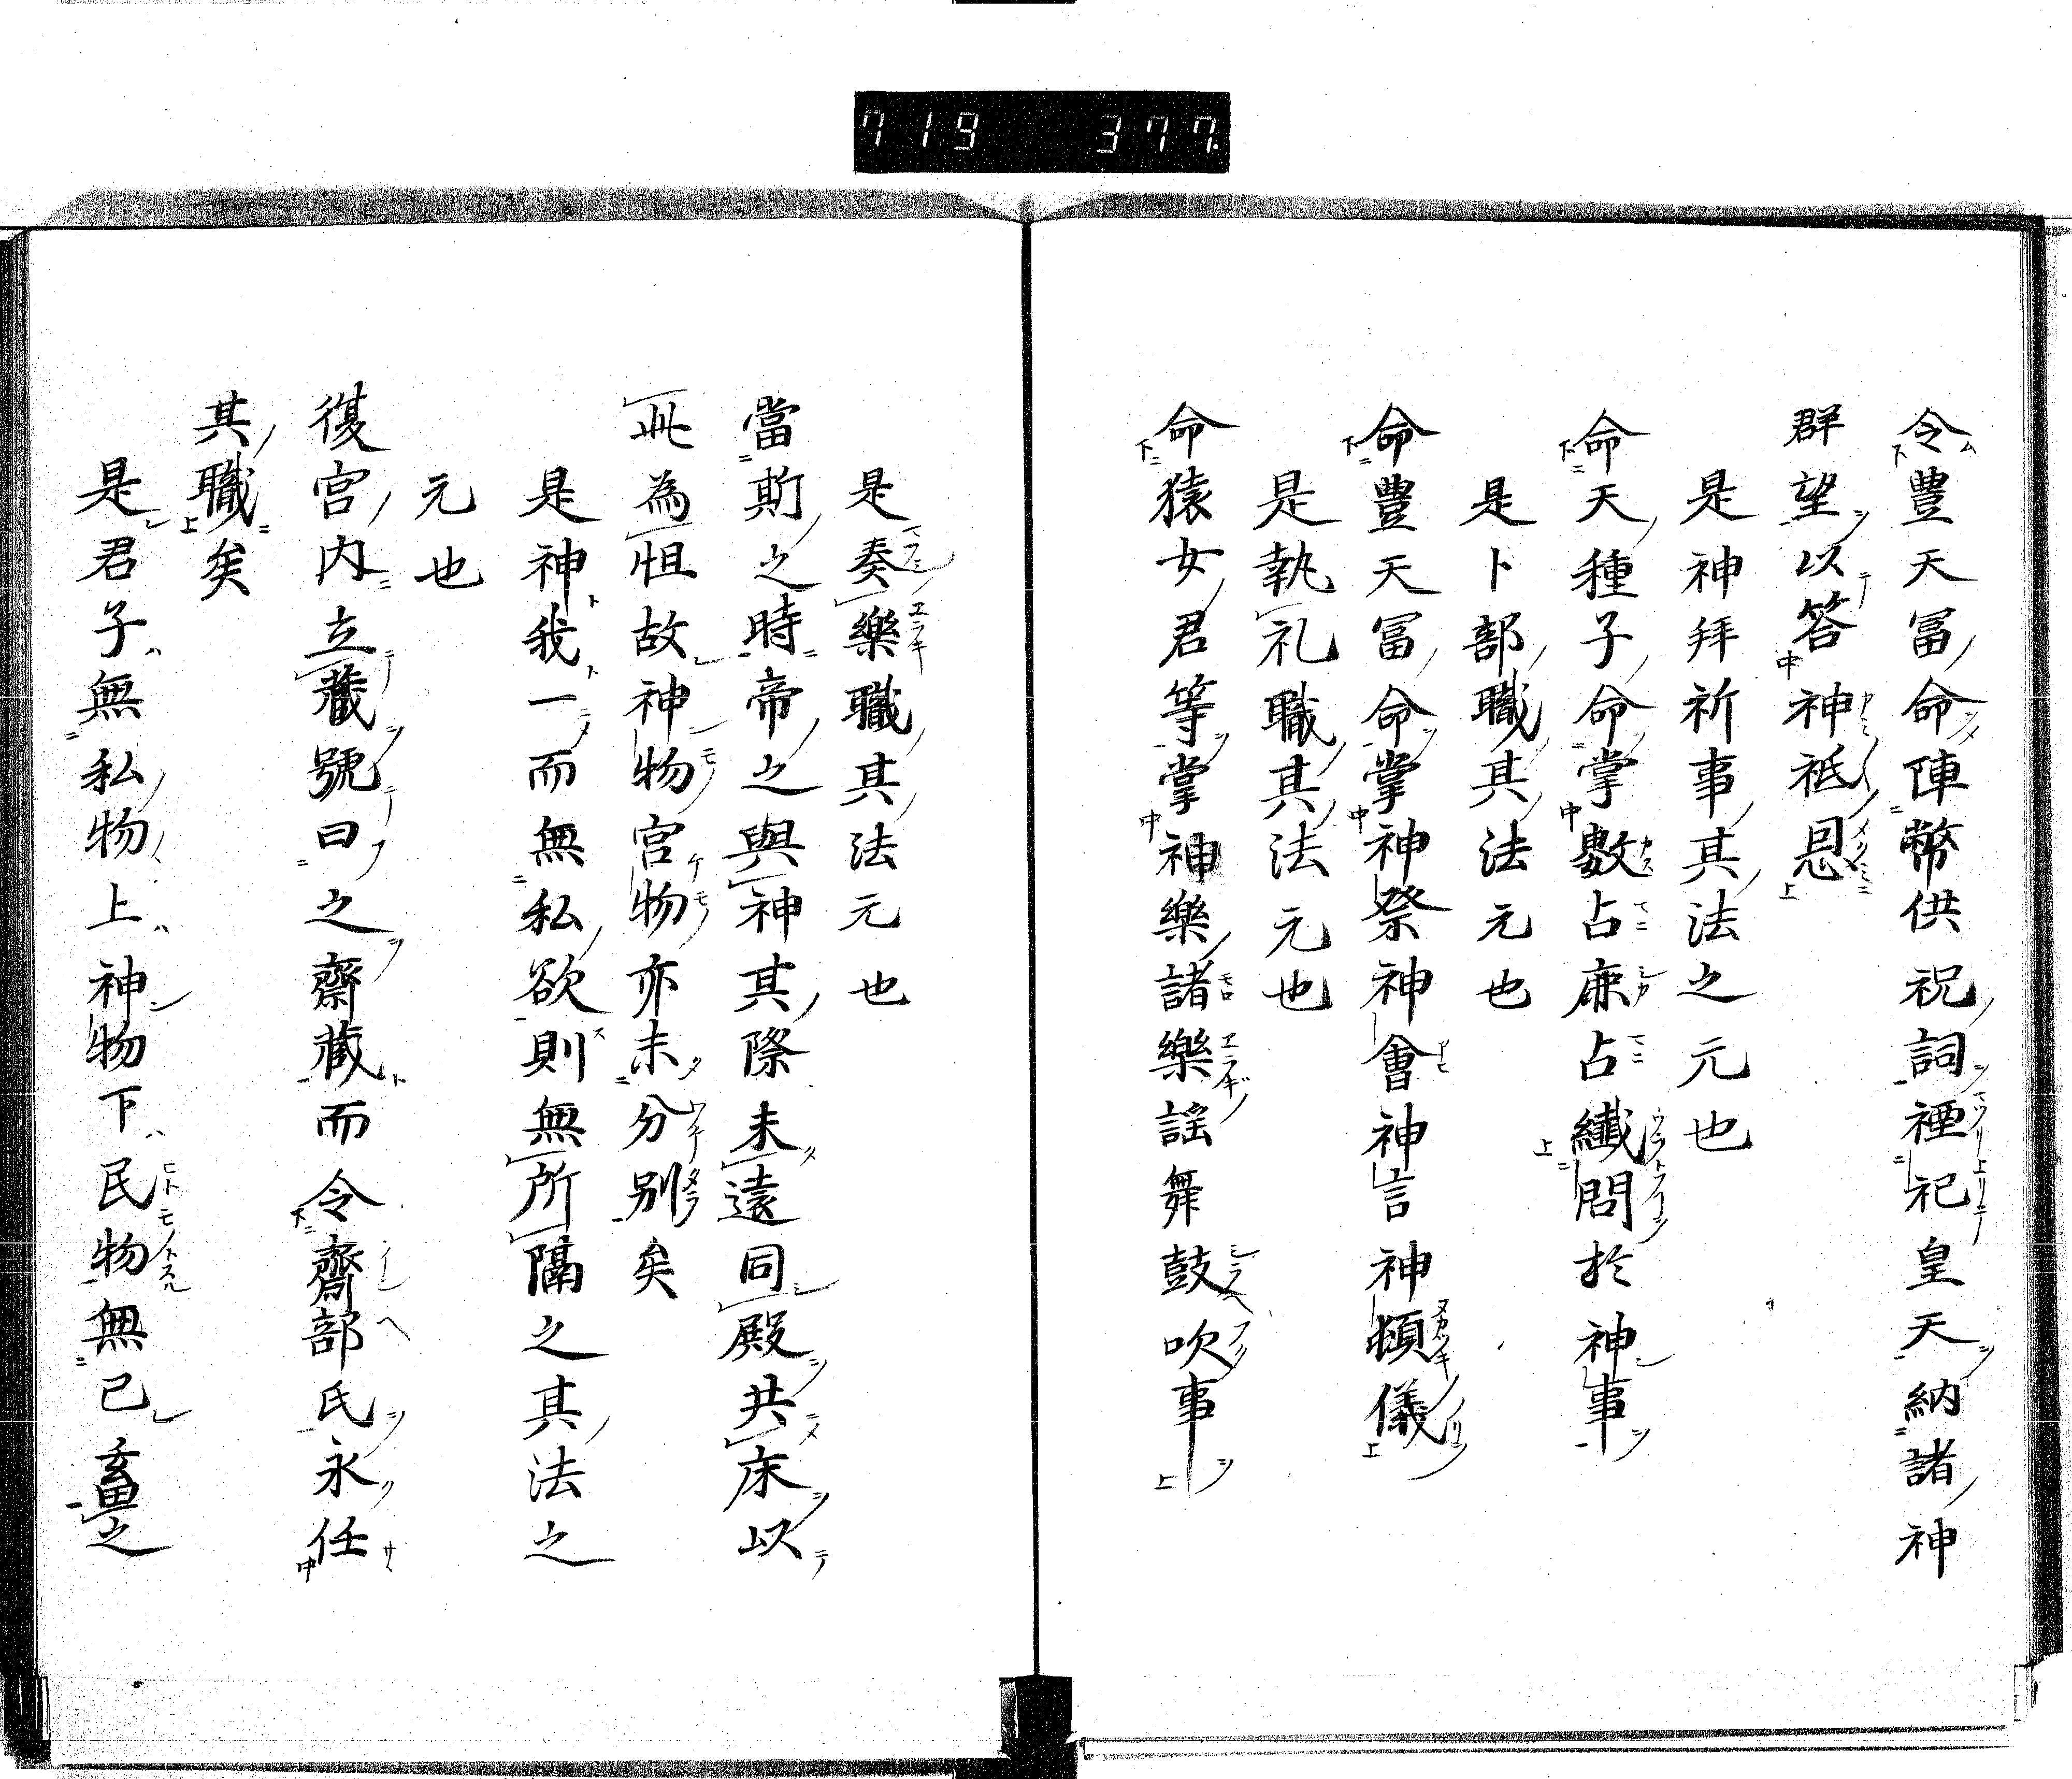 719 377.
令豊天冨命陣幣供祝詞禋祀皇天納諸神
群望以答神祇恩
是神拜祈事其法之元也
命天種子命掌數占鹿占纎問於神事
是卜部職其法元也
命豊天冨命掌神祭神會神言神頓儀
是執礼職其法元也
命猿女君等掌神樂諸樂謡舞鼓吹事
是奏樂職其法元也
當斯之時帝之與神其際未遠同殿共床以
此為恒故神物宮物亦未分別矣
是神我一而無私欲則無所隔之其法之
元也
復宮内立蔵號曰之齋蔵而令齋部氏永任
其職矣
是君子無私物上神物下民物無已畜之